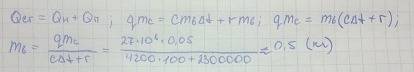 Qсг = Qн + Qп ; qmс = cmвΔt + rmв; qmс = mв(cΔt+r);
mв = qmс / cΔt+r = 27·10⁶·0,05 / 4200·100+2300000 ≈ 0,5 (кг)